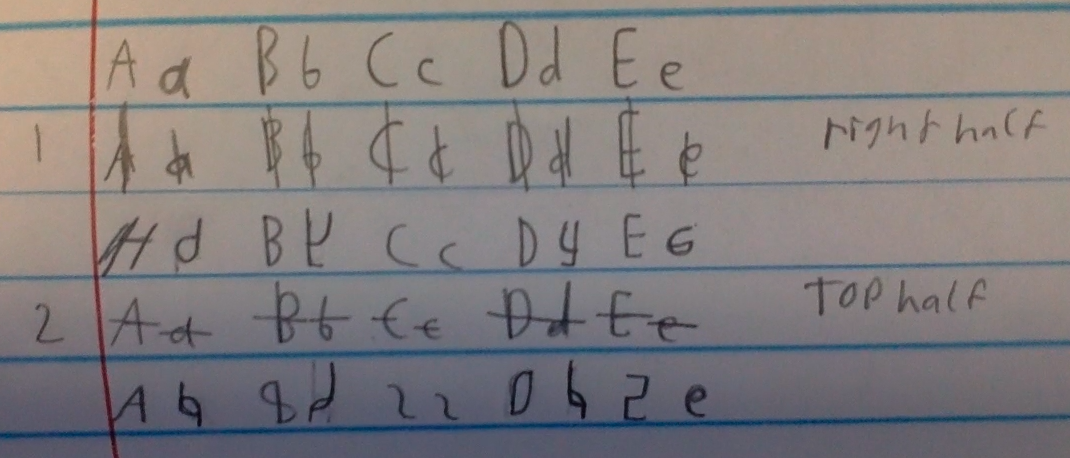 A a B b C c D d E e
1 A a B b C c D d E e right half
H d B y C c D y E G
2 A a B b C c D d E e TOP half
A 4 8 d 2 2 D h 2 e